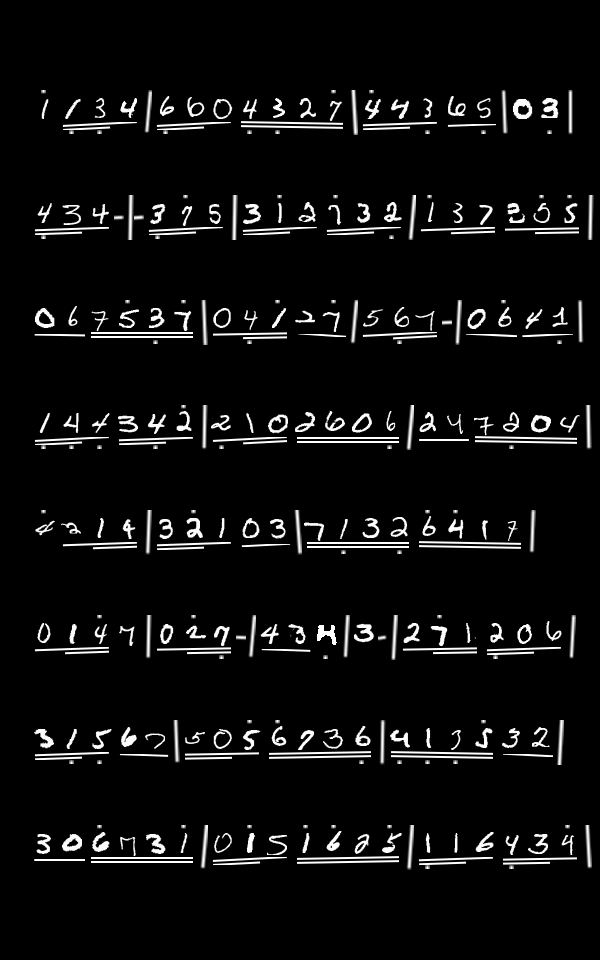 1 1 3 4 | 6 6 0 4 3 2 7 | 4 4 3 6 5 | 0 3 |
4 3 4 - | - 3 7 5 | 3 1 2 7 3 2 | 1 3 7 3 5 5 |
0 6 7 5 3 7 | 0 4 1 2 7 | 5 6 7 - | 0 6 4 1 |
1 4 4 3 4 2 | 2 1 0 2 6 0 6 | 2 4 7 2 0 4 |
4 2 1 4 | 3 2 1 0 3 | 7 1 3 2 6 4 1 7 |
0 1 4 7 | 0 2 7 - | 4 3 4 | 3 - | 2 7 1 2 0 6 |
3 1 5 6 7 | 5 0 5 6 7 3 6 | 4 1 3 5 3 2 |
3 0 6 7 3 1 | 0 1 5 1 6 2 5 | 1 1 6 4 3 4 |